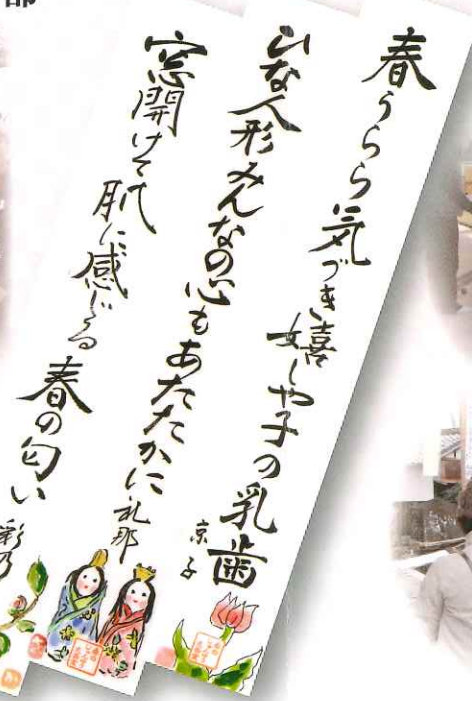 春うらら気づき嬉しや子の乳歯
京子
ひな人形みんなの心もあたたかに
礼那
窓開けて肌に感じる春の匂い
彩乃
部